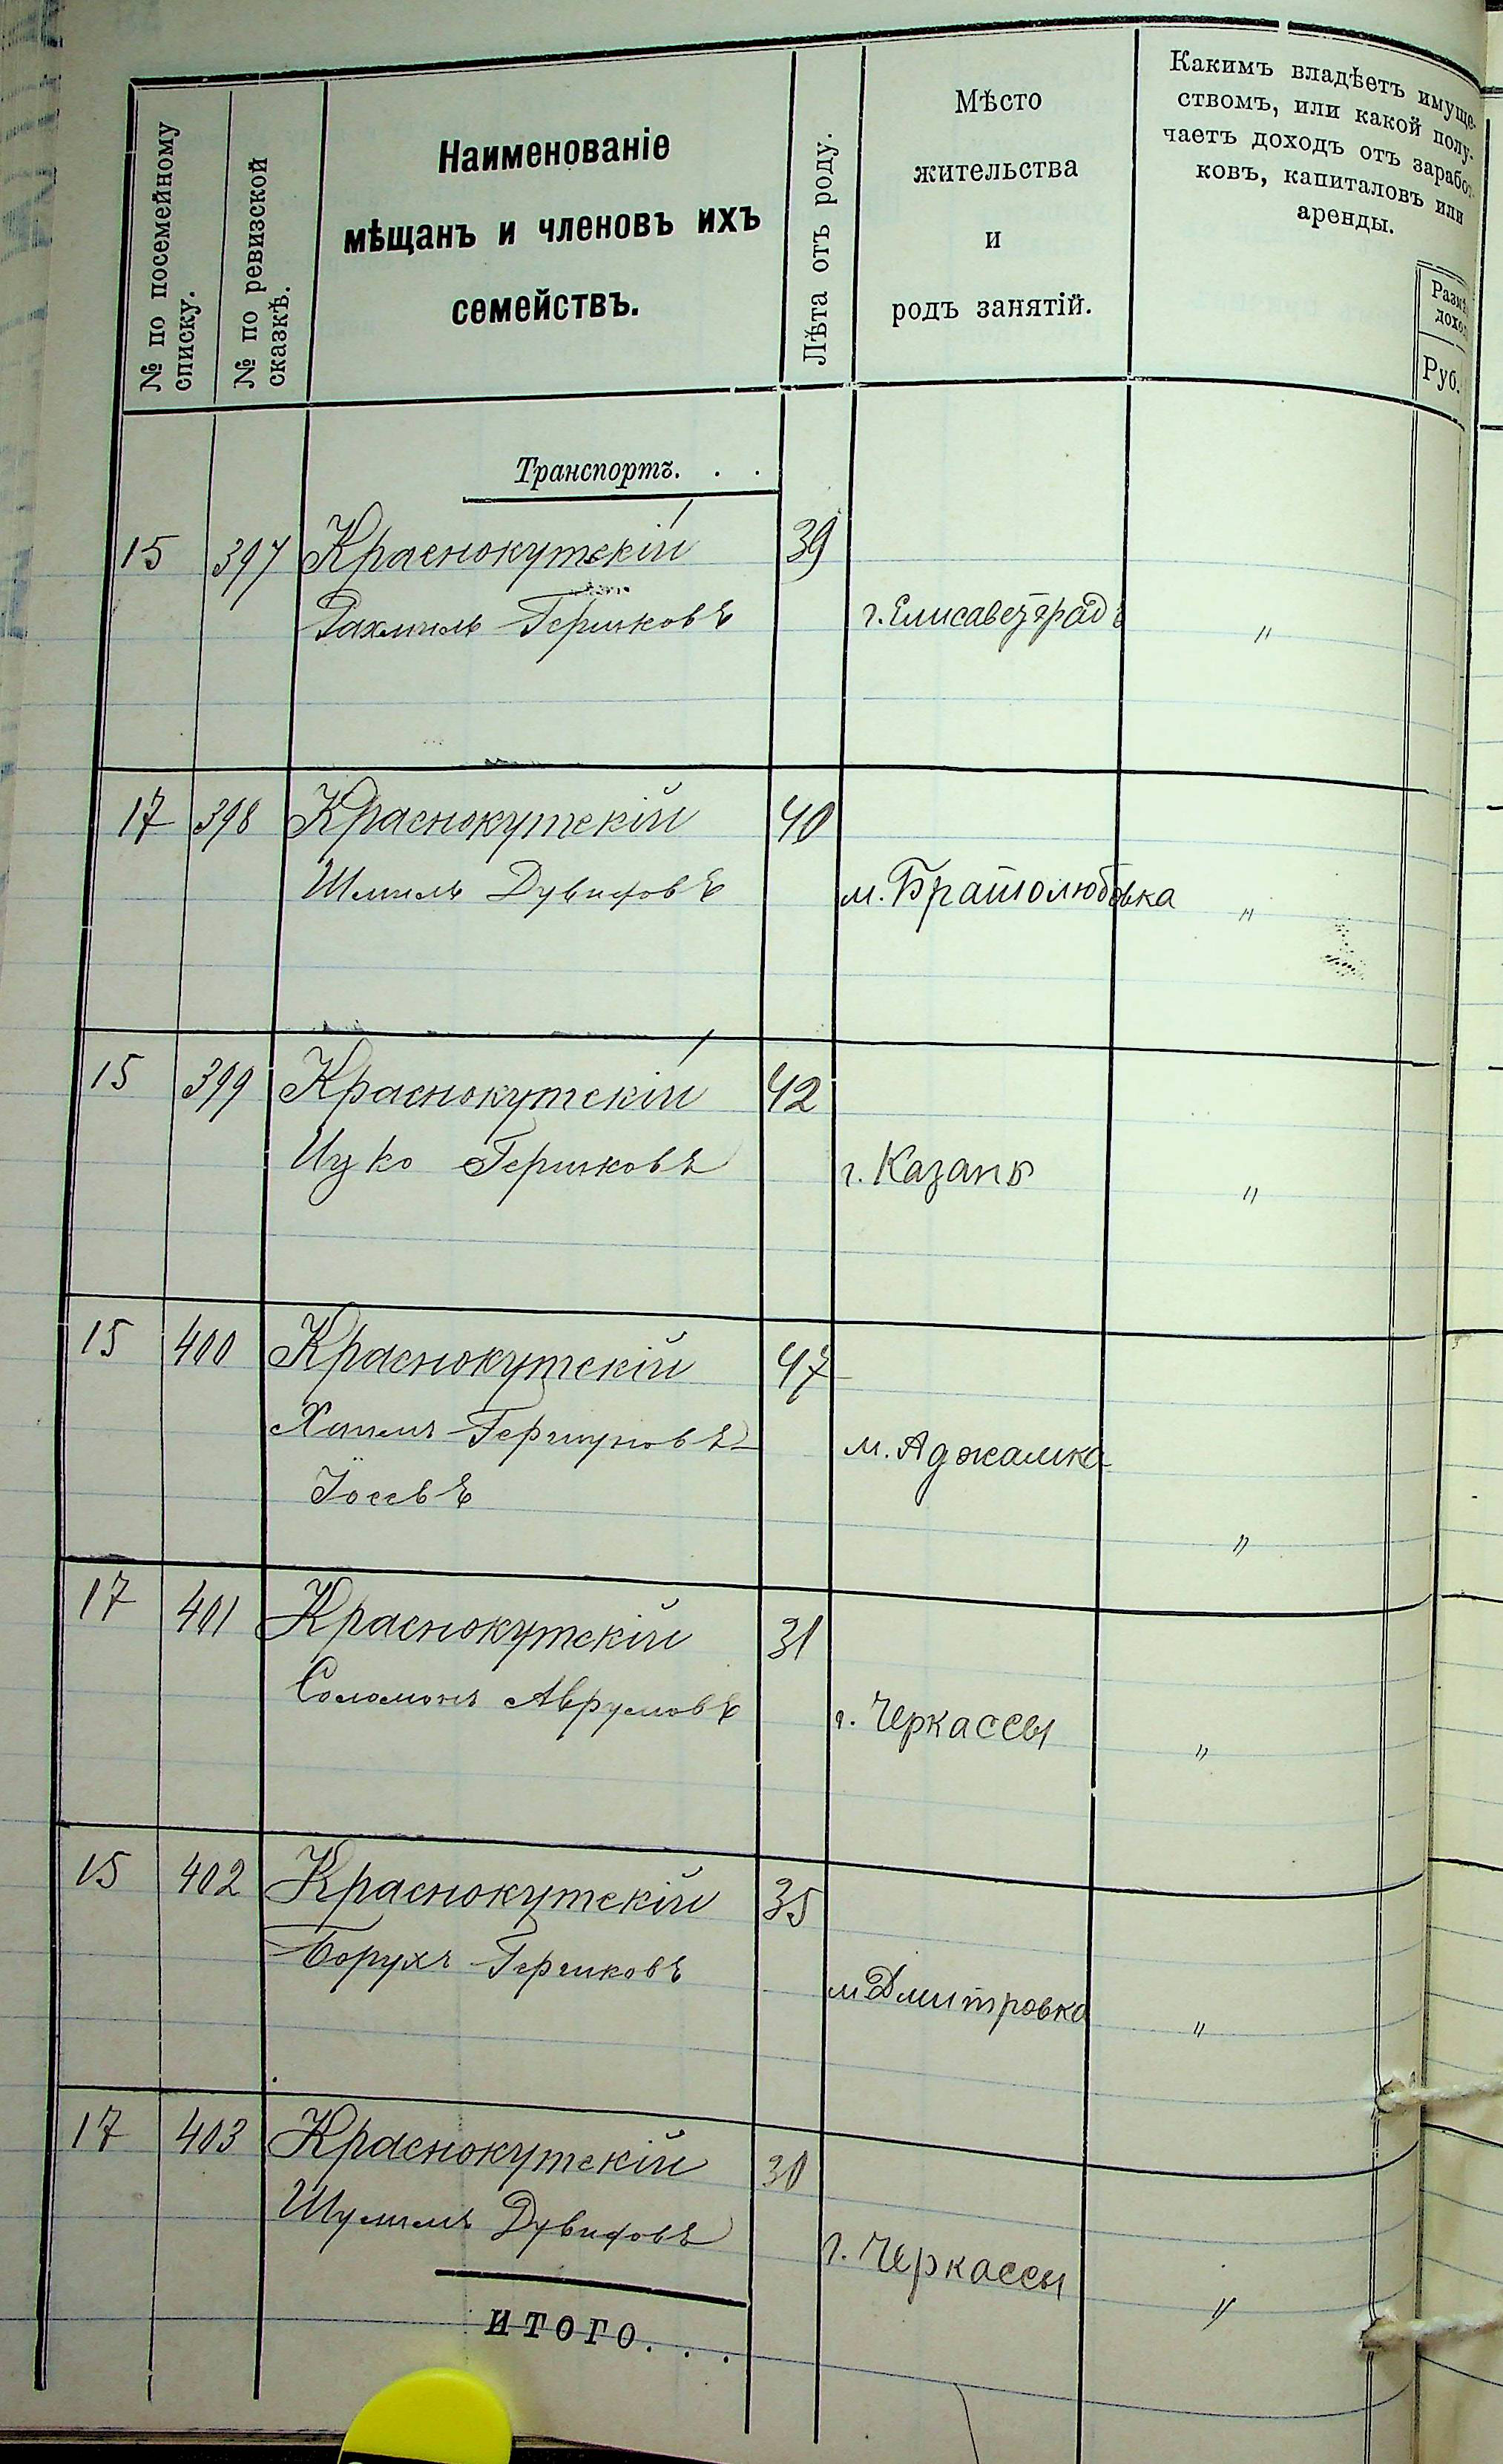 № по посемейному
списку.
№ по ревизской
сказкѣ.
Наименованіе
мѣщанъ и членовъ ихъ
семействъ.
Лѣта отъ роду.
Мѣсто
жительства
и
родъ занятій.
Какимъ владѣетъ имуще-
ствомъ, или какой полу-
чаетъ доходъ отъ заработ-
ковъ, капиталовъ или
аренды.
Руб.
Транспортъ. . .
15 397 Краснокутскій 39
Рахмиль Гершковъ г. Елисаветградъ "
17 398 Краснокутскій 40
Шмиль Дувидовъ м. Братолюбовка "
15 399 Краснокутскій 42
Ицко Гершковъ г. Казань "
15 400 Краснокутскій 47
Хаимъ Гершуновъ- м. Аджамка
Іосевъ "
17 401 Краснокутскій 31
Соломонъ Аврумовъ г. Черкассы "
15 402 Краснокутскій 35
Борухъ Гершковъ м Дмитровка "
17 403 Краснокутскій 30
Шулимъ Дувидовъ г. Черкассы "
ИТОГО. . .